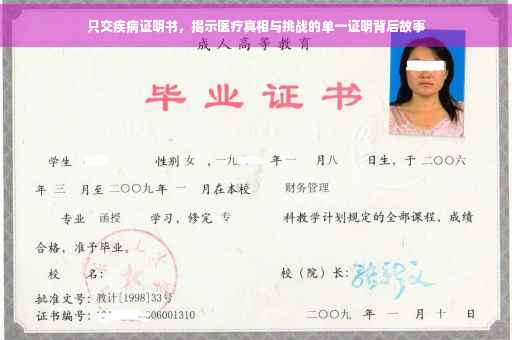 只交疾病证明书，揭示医疗真相与挑战的单一证明背后故事
成人高等教育
毕业证书
学生 性别 女 ，一九 年一 月八 日生，于二〇〇六
年 三 月至二〇〇九年 一 月在本校 财务管理
专业 函授 学习，修完 专 科教学计划规定的全部课程，成绩
合格，准予毕业。
校 名： 校（院）长：
批准文号：教计[1998]33号
证书编号： 06001310 二〇〇九 年 一 月 十 日